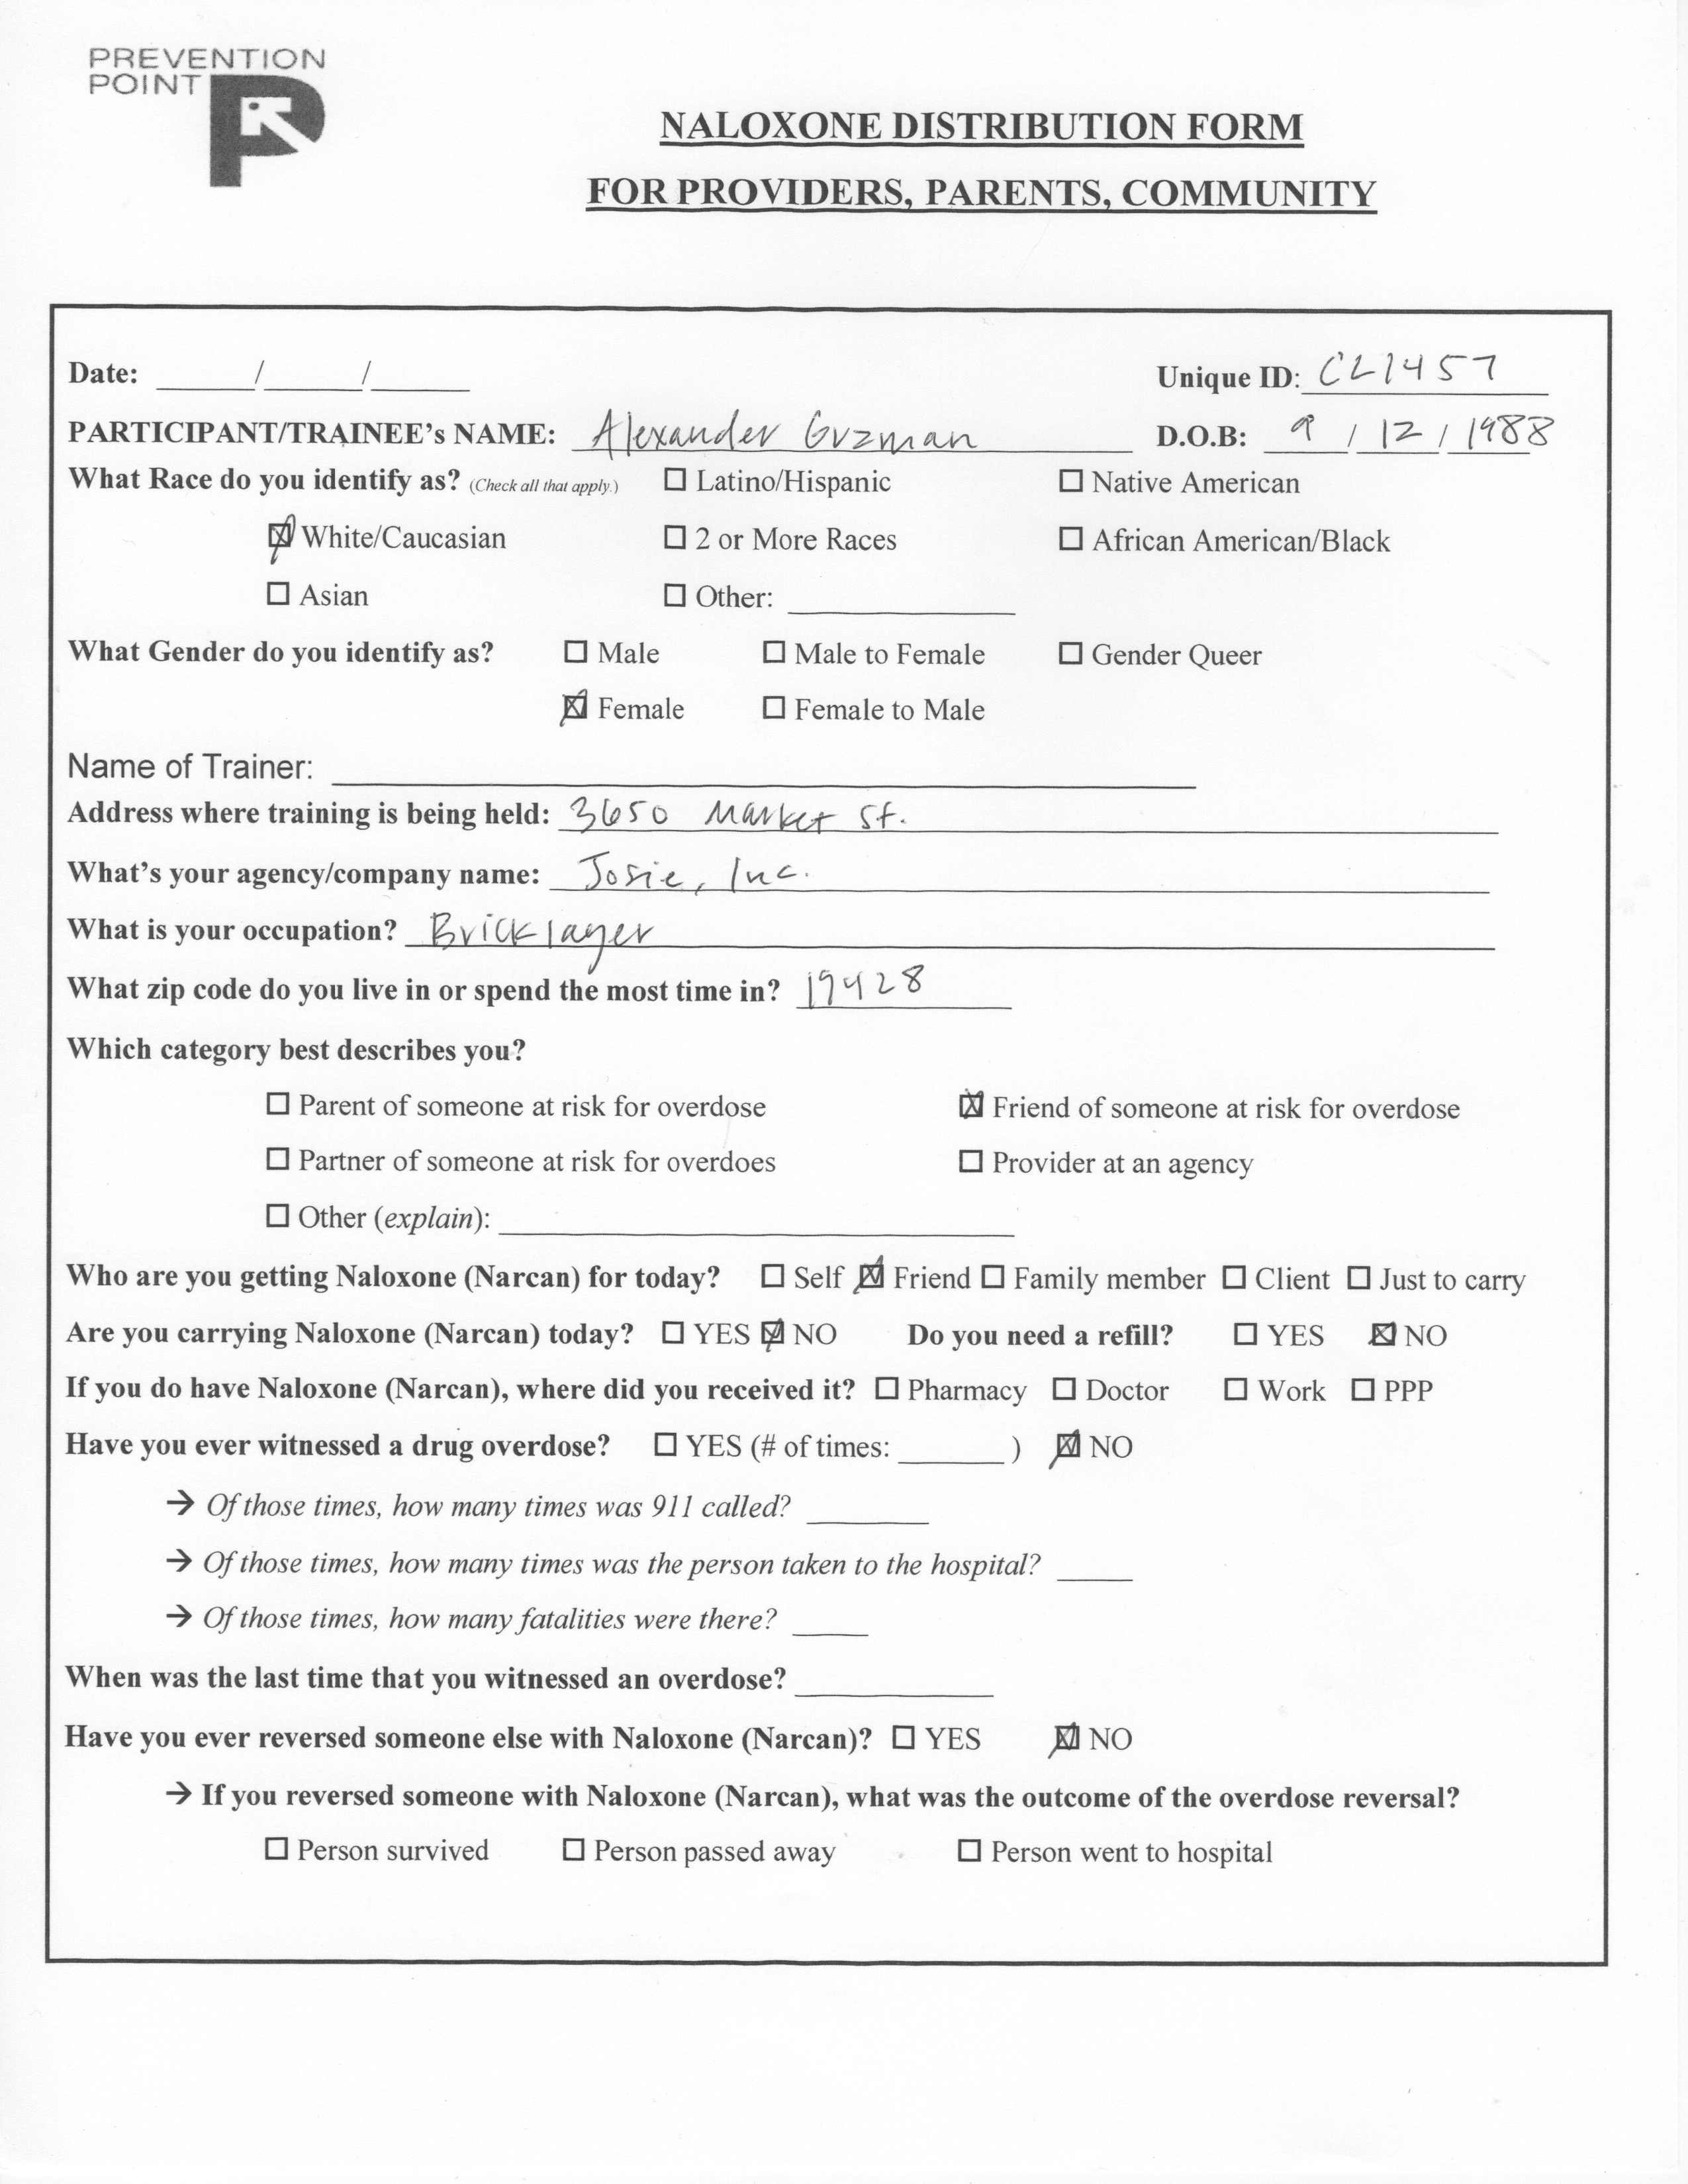 PREVENTION
POINT
NALOXONE DISTRIBUTION FORM
FOR PROVIDERS, PARENTS, COMMUNITY
Date: ______/______/______ Unique ID: CL1457
PARTICIPANT/TRAINEE's NAME: Alexander Guzman D.O.B: 9 / 12 / 1988
What Race do you identify as? (Check all that apply.) ☐ Latino/Hispanic ☐ Native American
☒ White/Caucasian ☐ 2 or More Races ☐ African American/Black
☐ Asian ☐ Other: ______
What Gender do you identify as? ☐ Male ☐ Male to Female ☐ Gender Queer
☒ Female ☐ Female to Male
Name of Trainer: ______
Address where training is being held: 3650 Market St.
What's your agency/company name: Josie, Inc.
What is your occupation? Bricklayer
What zip code do you live in or spend the most time in? 19428
Which category best describes you?
☐ Parent of someone at risk for overdose ☒ Friend of someone at risk for overdose
☐ Partner of someone at risk for overdoes ☐ Provider at an agency
☐ Other (explain): ______
Who are you getting Naloxone (Narcan) for today? ☐ Self ☒ Friend ☐ Family member ☐ Client ☐ Just to carry
Are you carrying Naloxone (Narcan) today? ☐ YES ☒ NO Do you need a refill? ☐ YES ☒ NO
If you do have Naloxone (Narcan), where did you received it? ☐ Pharmacy ☐ Doctor ☐ Work ☐ PPP
Have you ever witnessed a drug overdose? ☐ YES (# of times: ______ ) ☒ NO
→ Of those times, how many times was 911 called? ______
→ Of those times, how many times was the person taken to the hospital? ______
→ Of those times, how many fatalities were there? ______
When was the last time that you witnessed an overdose? ______
Have you ever reversed someone else with Naloxone (Narcan)? ☐ YES ☒ NO
→ If you reversed someone with Naloxone (Narcan), what was the outcome of the overdose reversal?
☐ Person survived ☐ Person passed away ☐ Person went to hospital